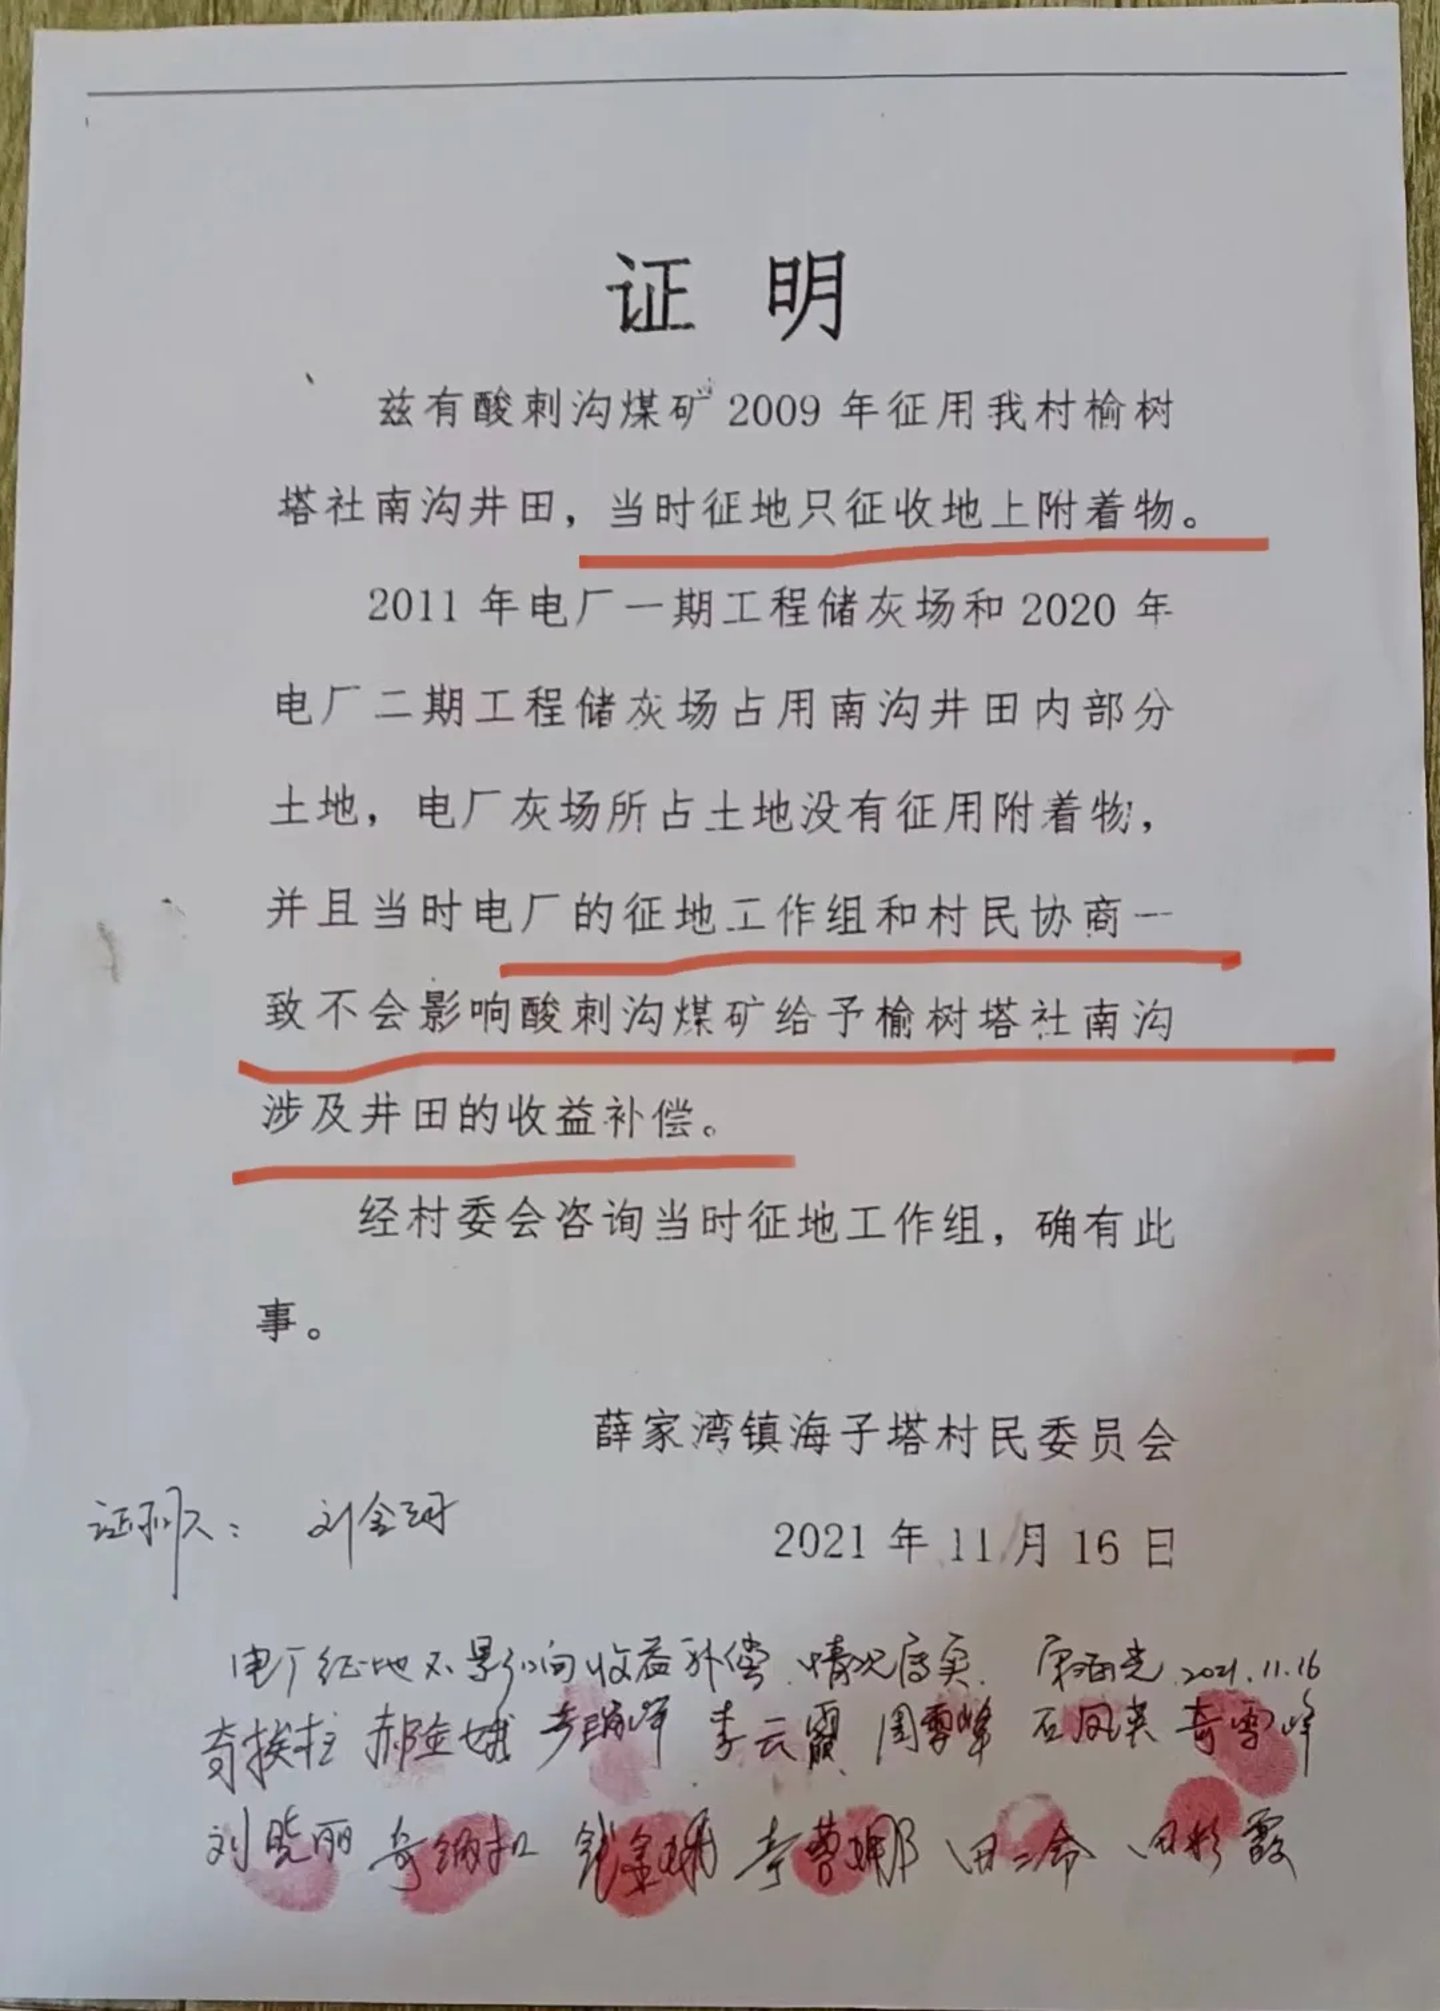 证 明
兹有酸刺沟煤矿 2009 年征用我村榆树
塔社南沟井田，当时征地只征收地上附着物。
2011 年电厂一期工程储灰场和 2020 年
电厂二期工程储灰场占用南沟井田内部分
土地，电厂灰场所占土地没有征用附着物，
并且当时电厂的征地工作组和村民协商一
致不会影响酸刺沟煤矿给予榆树塔社南沟
涉及井田的收益补偿。
经村委会咨询当时征地工作组，确有此
事。
薛家湾镇海子塔村民委员会
证明人： 刘金
2021 年 11 月 16 日
电厂征地不影响收益补偿 情况属实 2021.11.16
奇挨柱 郝金娥 李云霞 周雪峰 石凤英 奇雪峰
刘晓丽 田二命 田彩霞